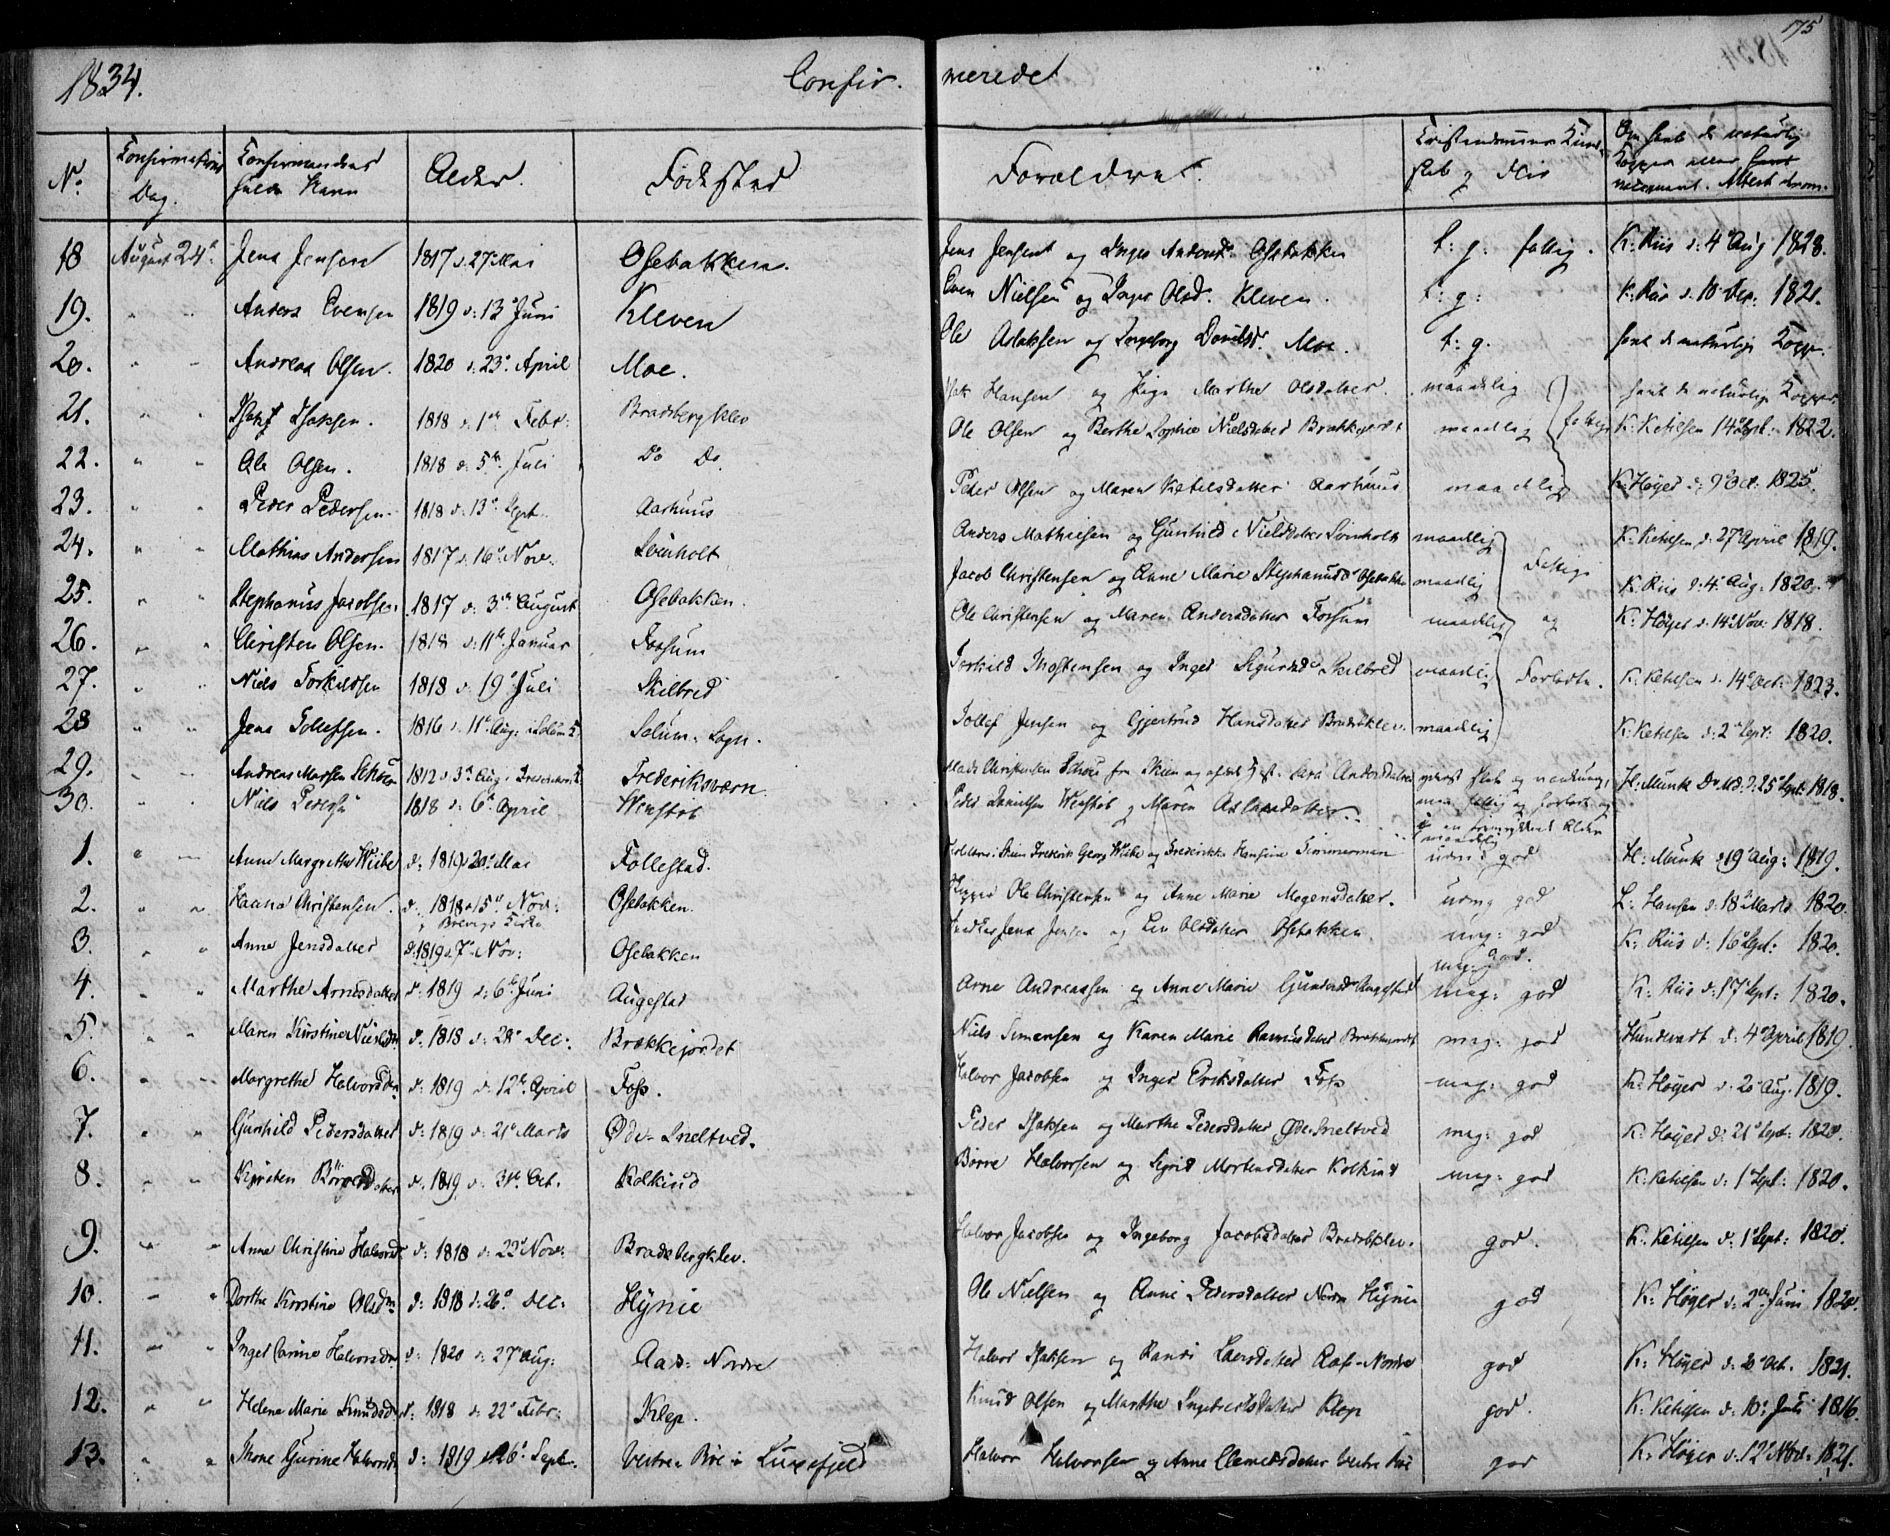 175
1834. Confir. merede
No. Confirmations Dag. Confirmandens fulde Navn Alder. Fødested Forældre. Christendoms Kundskab og Flid Om havt de naturlig Kopper eller vaccineret. Attest derom.
18 August 24de Jens Jensen 1817 d. 27 Mai Osebakken. Jens Jensen og Inger Andersd. Osebakken t: g: fattig. K: Riis d: 4 Aug 1828.
19. " " Anders Evensen 1819 d. 13 Juni Kleven Even Nielsen og Inger Olsd. Kleven. t: g: K: Riis d. 10 Sep. 1821.
20. " " Andreas Olsen. 1820 d: 23 April Moe. Ole Aslaksen og Ingeborg Davidsd. Moe. t: g. havt de naturlige Kopp.
21. " " Isak Isaksen. 1818 d. 1ste Febr: Bradsbergklev Isak Hansen og Pige Marthe Olsdatter. maadelig havt de naturlige Kopper
22. " " Ole Olsen. 1818 d: 5te Juli Do Do. Ole Olsen og Berthe Sophie Nielsdatter Brækkejordet maadelig fattige K: Ketilsen 14 Sept: 1822.
23. " " Peder Pedersen. 1818 d. 13 Sept. Aarhuus Peder Olsen og Maren Ketelsdatter Aarhuus maadelig K: Høyer d: 9 Oct: 1825.
24. " " Mathias Andersen 1817 d. 16 Nov: Leinholt Anders Mathiesen og Gunhild Nielsdatter maadelig K. Ketelsen d: 27 April 1819.
25. " " Stephanus Jacobsen 1817 d. 3die August Osebakken. Jacob Christensen og Anne Marie Stephanusd. Osebakken maadelig Fattige K: Riis d: 4 Aug: 1820.
26. " " Christen Olsen. 1818 d: 11te Januar Fossum Ole Christensen og Maren Andersdatter Fossum maadelig og K: Høyer d. 14 Nov: 1818.
27. " " Niels Torkildsen 1818 d. 19 Juli Skilbred Torkild Thostensen og Inger Sigurdsd. Skilbred maadelig Forladte. K: Ketelsen d. 14 Oct: 1823.
28 " " Jens Tollefsen. 1816 d. 11te Aug: i Solum K. Solum: Sogn. Tollef Jensen og Gjertrud Hansdatter Bradsbklev. maadelig K: Ketelsen d: 2 Sept: 1820.
29. " " Andreas Marsen 1812 d 3de Aug: Frederiksværn. Mads Christensen fra Skien og Andersdatter yderst slet og H: Munk D: 25 Sept: 1818.
30. " " Niels Peders. 1818 d: 6 April Wenstøb Peder Danielsen Wenstøb og Maren Aslaksdatter. maadelig
1. " " Anne Margrethe Wiibe d: 1819 20 Mai Follestad. Skien Frederik Georg Wiibe og Frederikke Hansine Timmerman udm: god H: Munk d 19 Aug: 1819.
2. " " Christensen. d. 1818 15de Nov: i Brevigs Kirke Osebakken. Ole Christensen og Anne Marie Mogensdatter. udm: god L: Hansen d: 18 Marts 1820.
3. " " Anne Jensdatter d. 1819 d 7 Nov: Osebakken Jens Jensen og Olsdatter Osebakken. meg: god K: Riis d: 16 Sept: 1820.
meg: god.
4. " " Marthe Arnesdatter d. 1819 d: 6te Juni Augestad Arne Andreassen og Anne Marie Gundersd. Augestad meg: god K: Riis d: 17 Sept: 1820.
5. " " Maren Kirstine Nielsd. d. 1818 d: 28 Dec: Brækkejordet Niels Simensen og Karen Marie Rasmusdatter Brækkejordet meg: god Hundvadt d: 4 April 1819.
6. " " Margrethe Halvorsd. d: 1819 d: 12te April Foss. Halvor Jacobsen og Inger Eriksdatter Foss meg: god K: Høyer d. 20 Aug. 1819.
7. " " Gunhild Pedersdatter d: 1819 d: 21 Marts Øde-Sneltved. Peder Isaksen og Marthe Pedersdatter Øde Sneltved meg: god K: Høyer d: 21 Sept: 1820.
8. " " Kirsten Børresdatter d. 1819 d. 31te Oct. Kolkind Børre Halvorsen og Sigrid Mortensdatter Kolkind meg: god K: Ketelsen d: 1 Sept: 1820.
9. " " Anne Christine Halvorsd. d: 1818 d: 22 Nov: Bradsbergklev. Halvor Jacobsen og Ingeborg Jacobsdatter Bradsbklev. god. K: Ketelsen d: 1 Sept: 1820.
10. " " Dorthe Kirstine Olsd. d: 1818 d: 26 Dec: Hynie Ole Nielsen og Anne Pedersdatter Nordre Hynie god K: Høyer d: 2den Juni 1820.
11. " " Inger Carine Halvorsd. d: 1820 d: 27 Aug: Aas: Nordre Halvor Isaksen og Randi Larsdatter Aas-Nordre god K: Høyer d: 20 Oct. 1821.
12. " " Helene Marie Knudsd. d: 1818 d: 22 Febr: Klep. Knud Olsen og Marthe Ingebretsdatter Klep god. K: Ketilsen d: 10: Juli 1816.
13. " " Thone Gurine Halvorsd. d: 1819 d 26 Sept: Vestre Bøe i Luxefjeld Halvor Halvorsen og Anne Clemetsdatter Vestre Bøe god K: Høyer d. 12 Nov: 1821.